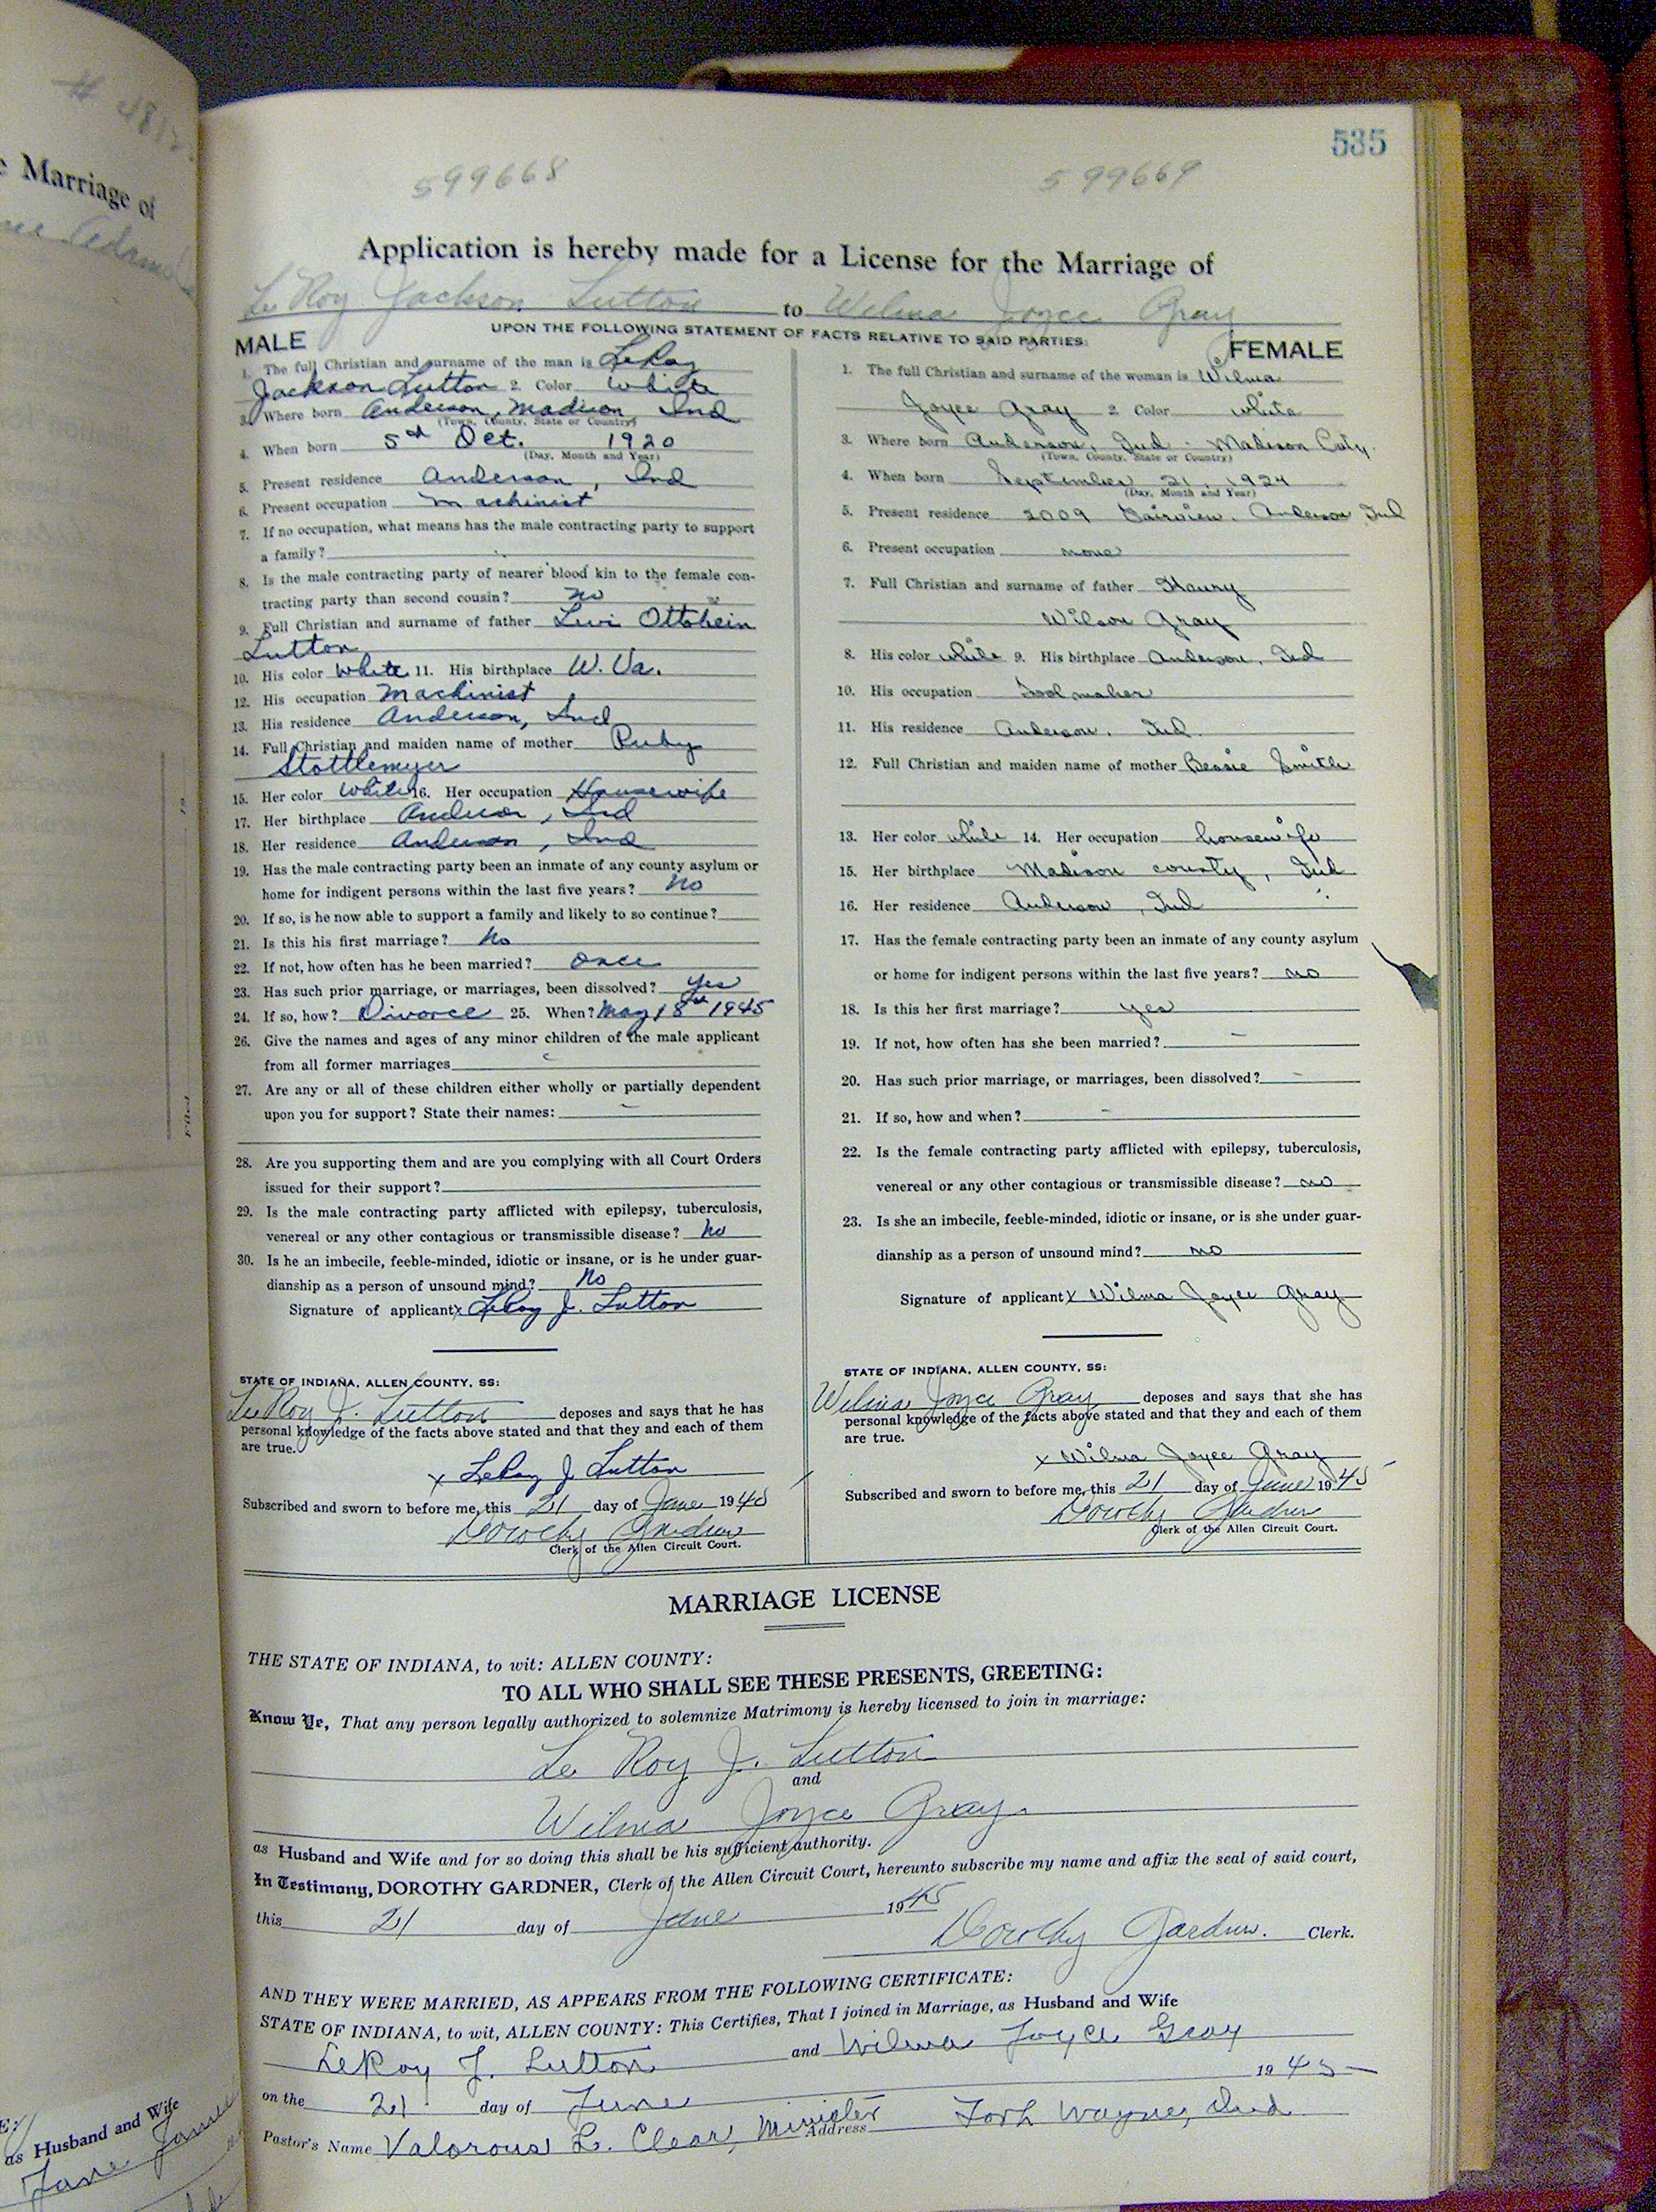 535
599668 599669
Application is hereby made for a License for the Marriage of
Le Roy Jackson Lutton to Wilma Joyce Gray
UPON THE FOLLOWING STATEMENT OF FACTS RELATIVE TO SAID PARTIES:
MALE
1. The full Christian and surname of the man is LeRoy
Jackson Lutton 2. Color White
3. Where born Anderson, Madison, Ind
(Town, County, State or Country)
4. When born 5th Oct. 1920
(Day, Month and Year)
5. Present residence Anderson, Ind
6. Present occupation Machinist
7. If no occupation, what means has the male contracting party to support
a family?
8. Is the male contracting party of nearer blood kin to the female con-
tracting party than second cousin? no
9. Full Christian and surname of father Levi Ottobein
Lutton
10. His color White 11. His birthplace W. Va.
12. His occupation Machinist
13. His residence Anderson, Ind
14. Full Christian and maiden name of mother Ruby
Stottlemyer
15. Her color White 16. Her occupation Housewife
17. Her birthplace Anderson, Ind
18. Her residence Anderson, Ind
19. Has the male contracting party been an inmate of any county asylum or
home for indigent persons within the last five years? no
20. If so, is he now able to support a family and likely to so continue?
21. Is this his first marriage? No
22. If not, how often has he been married? once
23. Has such prior marriage, or marriages, been dissolved? Yes
24. If so, how? Divorce 25. When? May 18th 1945
26. Give the names and ages of any minor children of the male applicant
from all former marriages
27. Are any or all of these children either wholly or partially dependent
upon you for support? State their names: -
28. Are you supporting them and are you complying with all Court Orders
issued for their support?
29. Is the male contracting party afflicted with epilepsy, tuberculosis,
venereal or any other contagious or transmissible disease? No
30. Is he an imbecile, feeble-minded, idiotic or insane, or is he under guar-
dianship as a person of unsound mind? No
Signature of applicant x LeRoy J. Lutton
STATE OF INDIANA, ALLEN COUNTY, SS:
LeRoy J. Lutton deposes and says that he has
personal knowledge of the facts above stated and that they and each of them
are true.
x LeRoy J. Lutton
Subscribed and sworn to before me, this 21 day of June 1945
Dorothy Gardner
Clerk of the Allen Circuit Court.
FEMALE
1. The full Christian and surname of the woman is Wilma
Joyce Gray 2. Color white
3. Where born Anderson, Ind - Madison Cnty.
(Town, County, State or Country)
4. When born September 21, 1924
(Day, Month and Year)
5. Present residence 2009 Fairview, Anderson Ind
6. Present occupation none
7. Full Christian and surname of father Haury
Wilson Gray
8. His color white 9. His birthplace Anderson, Ind
10. His occupation Toolmaker
11. His residence Anderson, Ind.
12. Full Christian and maiden name of mother Bessie Smith
13. Her color white 14. Her occupation housewife
15. Her birthplace Madison county, Ind
16. Her residence Anderson, Ind
17. Has the female contracting party been an inmate of any county asylum
or home for indigent persons within the last five years? no
18. Is this her first marriage? yes
19. If not, how often has she been married? -
20. Has such prior marriage, or marriages, been dissolved? -
21. If so, how and when? -
22. Is the female contracting party afflicted with epilepsy, tuberculosis,
venereal or any other contagious or transmissible disease? no
23. Is she an imbecile, feeble-minded, idiotic or insane, or is she under guar-
dianship as a person of unsound mind? no
Signature of applicant x Wilma Joyce Gray
STATE OF INDIANA, ALLEN COUNTY, SS:
Wilma Joyce Gray deposes and says that she has
personal knowledge of the facts above stated and that they and each of them
are true.
x Wilma Joyce Gray
Subscribed and sworn to before me, this 21 day of June 1945
Dorothy Gardner
Clerk of the Allen Circuit Court.
MARRIAGE LICENSE
THE STATE OF INDIANA, to wit: ALLEN COUNTY:
TO ALL WHO SHALL SEE THESE PRESENTS, GREETING:
Know Ye, That any person legally authorized to solemnize Matrimony is hereby licensed to join in marriage:
Le Roy J. Lutton
and
Wilma Joyce Gray
as Husband and Wife and for so doing this shall be his sufficient authority.
In Testimony, DOROTHY GARDNER, Clerk of the Allen Circuit Court, hereunto subscribe my name and affix the seal of said court,
this 21 day of June 1945
Dorothy Gardner. Clerk.
AND THEY WERE MARRIED, AS APPEARS FROM THE FOLLOWING CERTIFICATE:
STATE OF INDIANA, to wit, ALLEN COUNTY: This Certifies, That I joined in Marriage, as Husband and Wife
LeRoy J. Lutton and Wilma Joyce Gray
on the 21 day of June 1945
Pastor's Name Valorous L. Clear, Minister Address Fort Wayne, Ind
Marriage of
as Husband and Wife
Filed